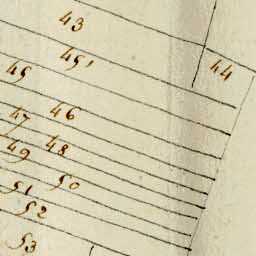 43
44
45'
45
46
47
48
49
50
51
52
53